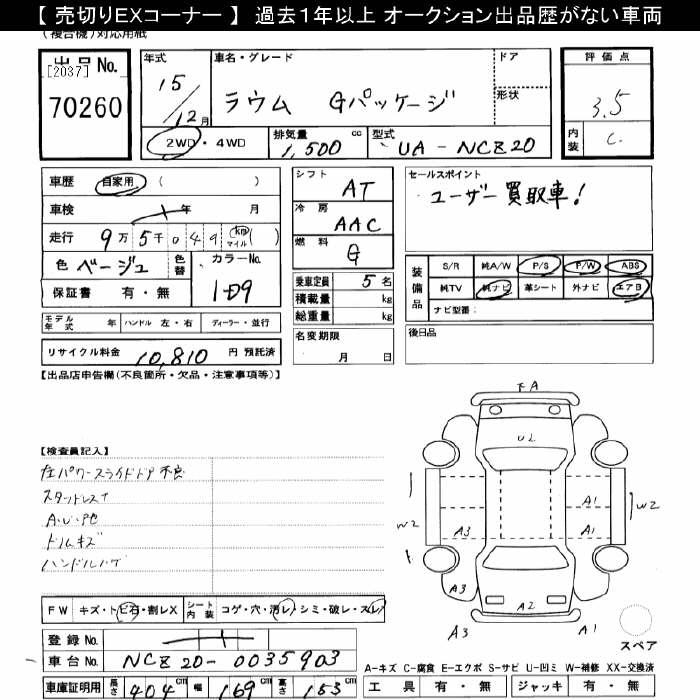 【 売切りEXコーナー 】 過去１年以上 オークション出品歴がない車両
(複合機)対応用紙
出品No.
[2037]
70260
年式
15/12月
車名・グレード
ラウム Gパッケージ
ドア
形状
評価点
3.5
内装
C
2WD・4WD
排気量 1,500 cc
型式 UA-NCZ20
車歴 自家用 ( )
車検 年 月
走行 9万5千049 km マイル ( )
色 ベージュ
色替
カラーNo. 1D9
保証書 有・無
シフト AT
冷房 AAC
燃料 G
乗車定員 5名
積載量 kg
総重量 kg
名変期限 月 日
セールスポイント
ユーザー買取車！
装備品
S/R 純A/W P/S P/W ABS
純TV 純ナビ 革シート 外ナビ エアB
ナビ型番：
後日品
モデル年式 年 ハンドル 左・右 ディーラー・並行
リサイクル料金 10,810 円 預託済
【出品店申告欄(不良箇所・欠品・注意事項等)】
【検査員記入】
左パワースライドドア不良
スタッドレス
A・U・P他
ドリムキズ
ハンドルハゲ
FA
U2
W2
A3
A3
A3
A2
A1
A1
A1
W2
スペア
FW キズ・トビ石・割レX
シート内装 コゲ・穴・汚レ・シミ・破レ・スレ
登録 No.
車台 No. NCZ20-0035903
車庫証明用 長さ 404 cm 幅 169 cm 高さ 153 cm
A-キズ C-腐食 E-エクボ S-サビ U-凹ミ W-補修 XX-交換済
工具 有・無 ジャッキ 有・無